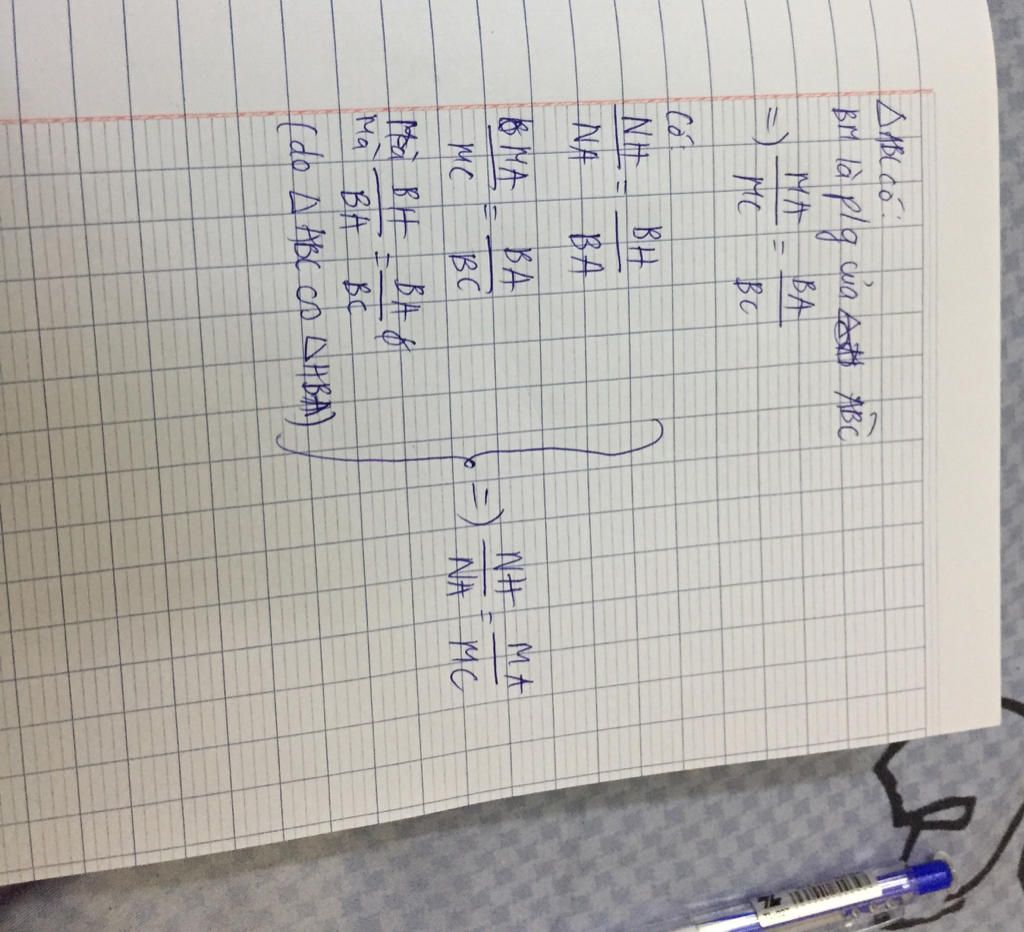 △ABC có:
BM là p/g của ABC
=) MA/MC = BA/BC
Có:
NH/NA = BH/BA
MA/MC = BA/BC
Mà BH/BA = BA/BC
(do △ABC ∽ △HBA)
=) NH/NA = MA/MC